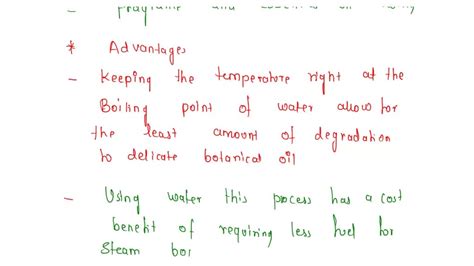 * Advantages
- Keeping the temperature right at the
Boiling point of water allow for
the least amount of degradation
to delicate botanical oil
- Using water this process has a cost
benefit of requiring less fuel for
Steam boi